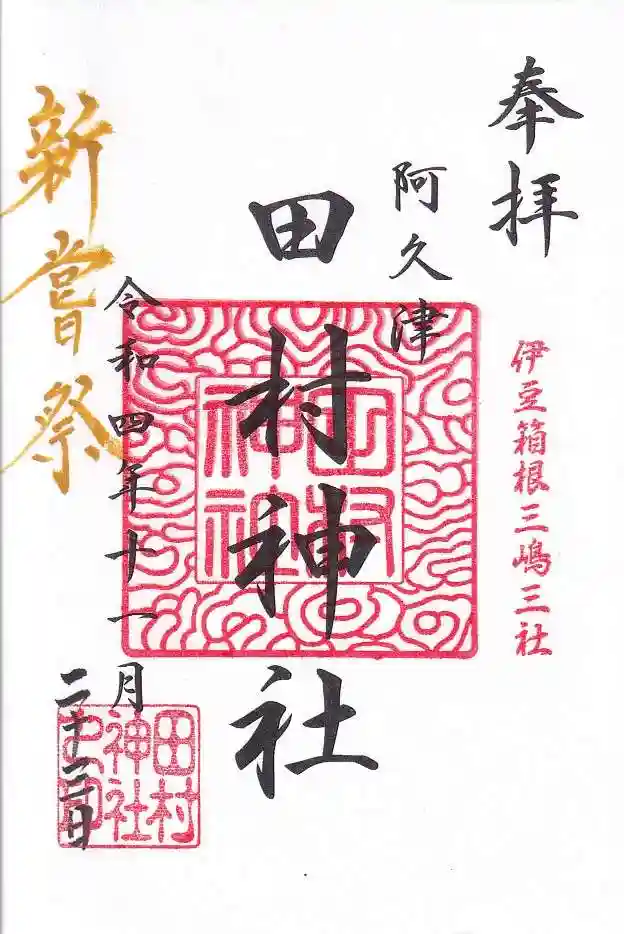 奉拝
伊豆箱根三嶋三社
阿久津
田村神社
令和四年十一月
二十三日
新嘗祭
田村
神社